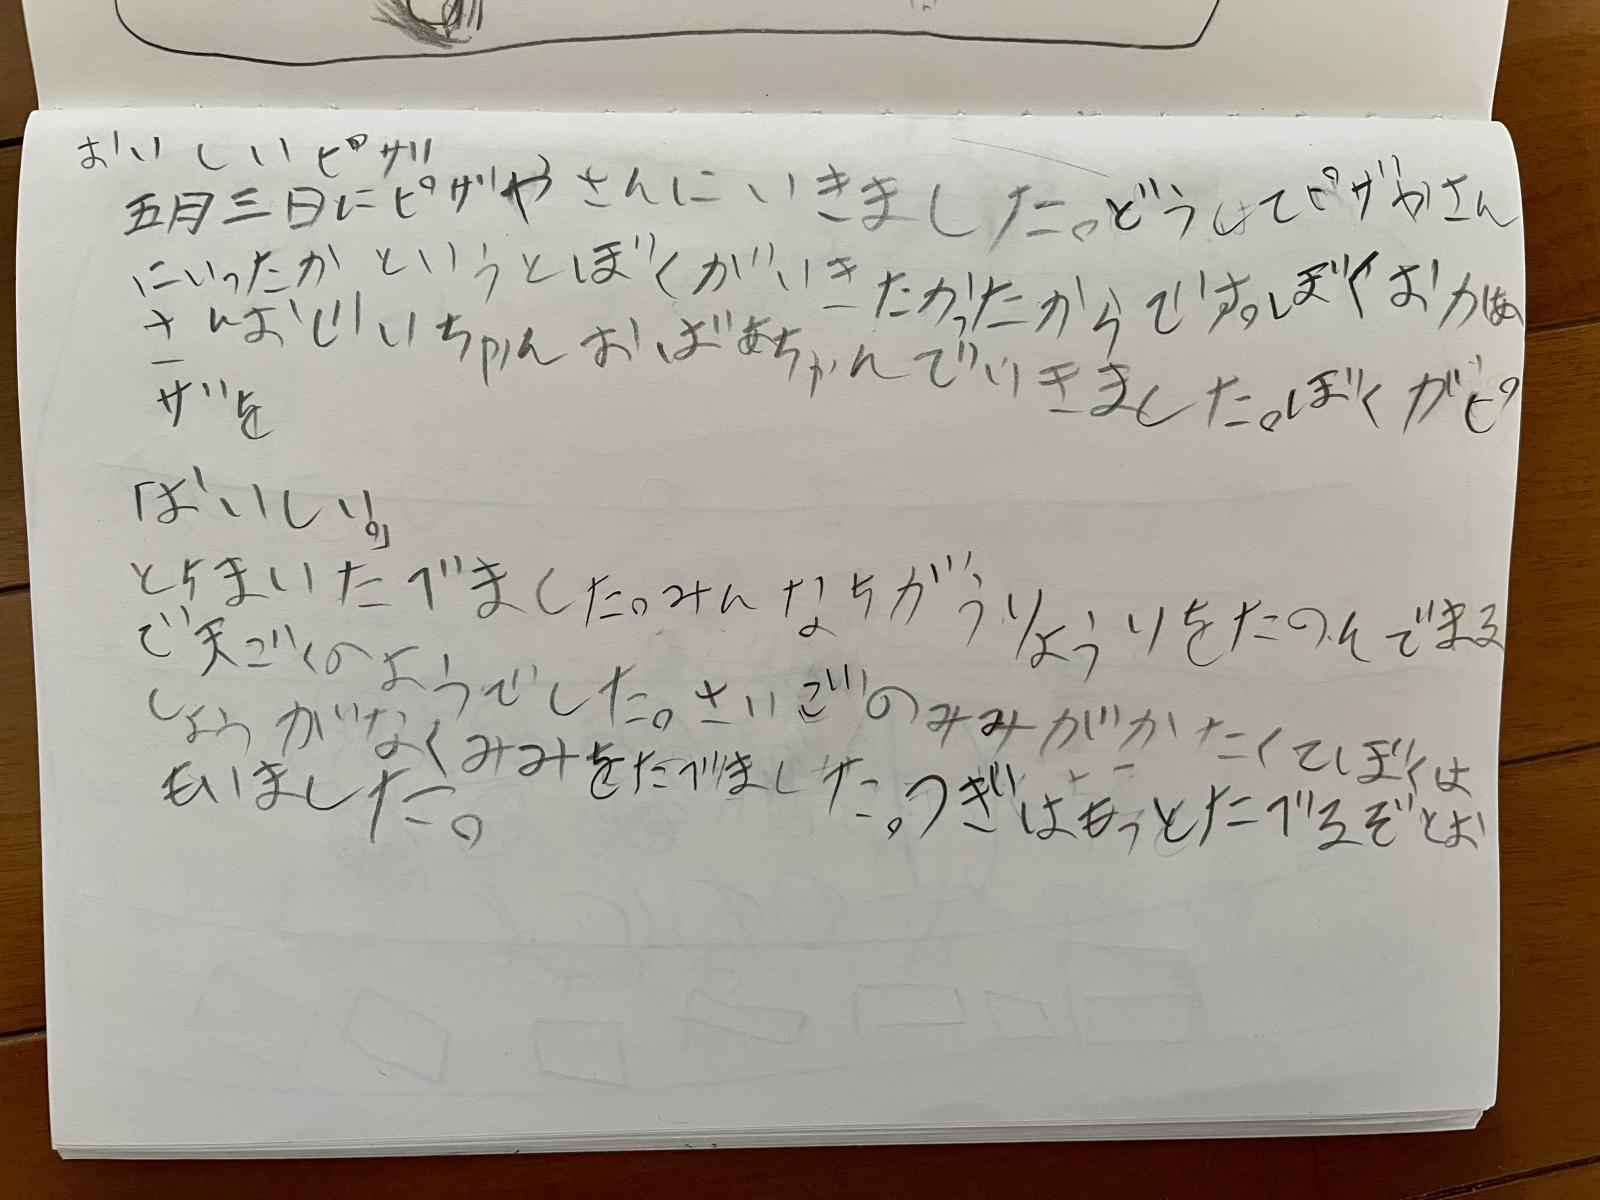 おいしいピザ
五月三日にピザやさんにいきました。どうしてピザやさん
にいったかというとぼくがいきたかったからです。ぼくおかあ
さんおじいちゃんおばあちゃんでいきました。ぼくがピ
ザを
「おいしい。」
とうまいたべました。みんなちがうりょうりをたのんでまる
で天ごくのようでした。さいごのみみがかたくてぼくは
しょうがなくみみをたべました。つぎはもっとたべるぞとお
もいました。